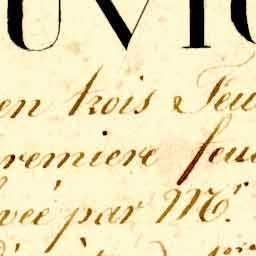 UVIC
en trois Feu
remiere feu
vée par Mr.